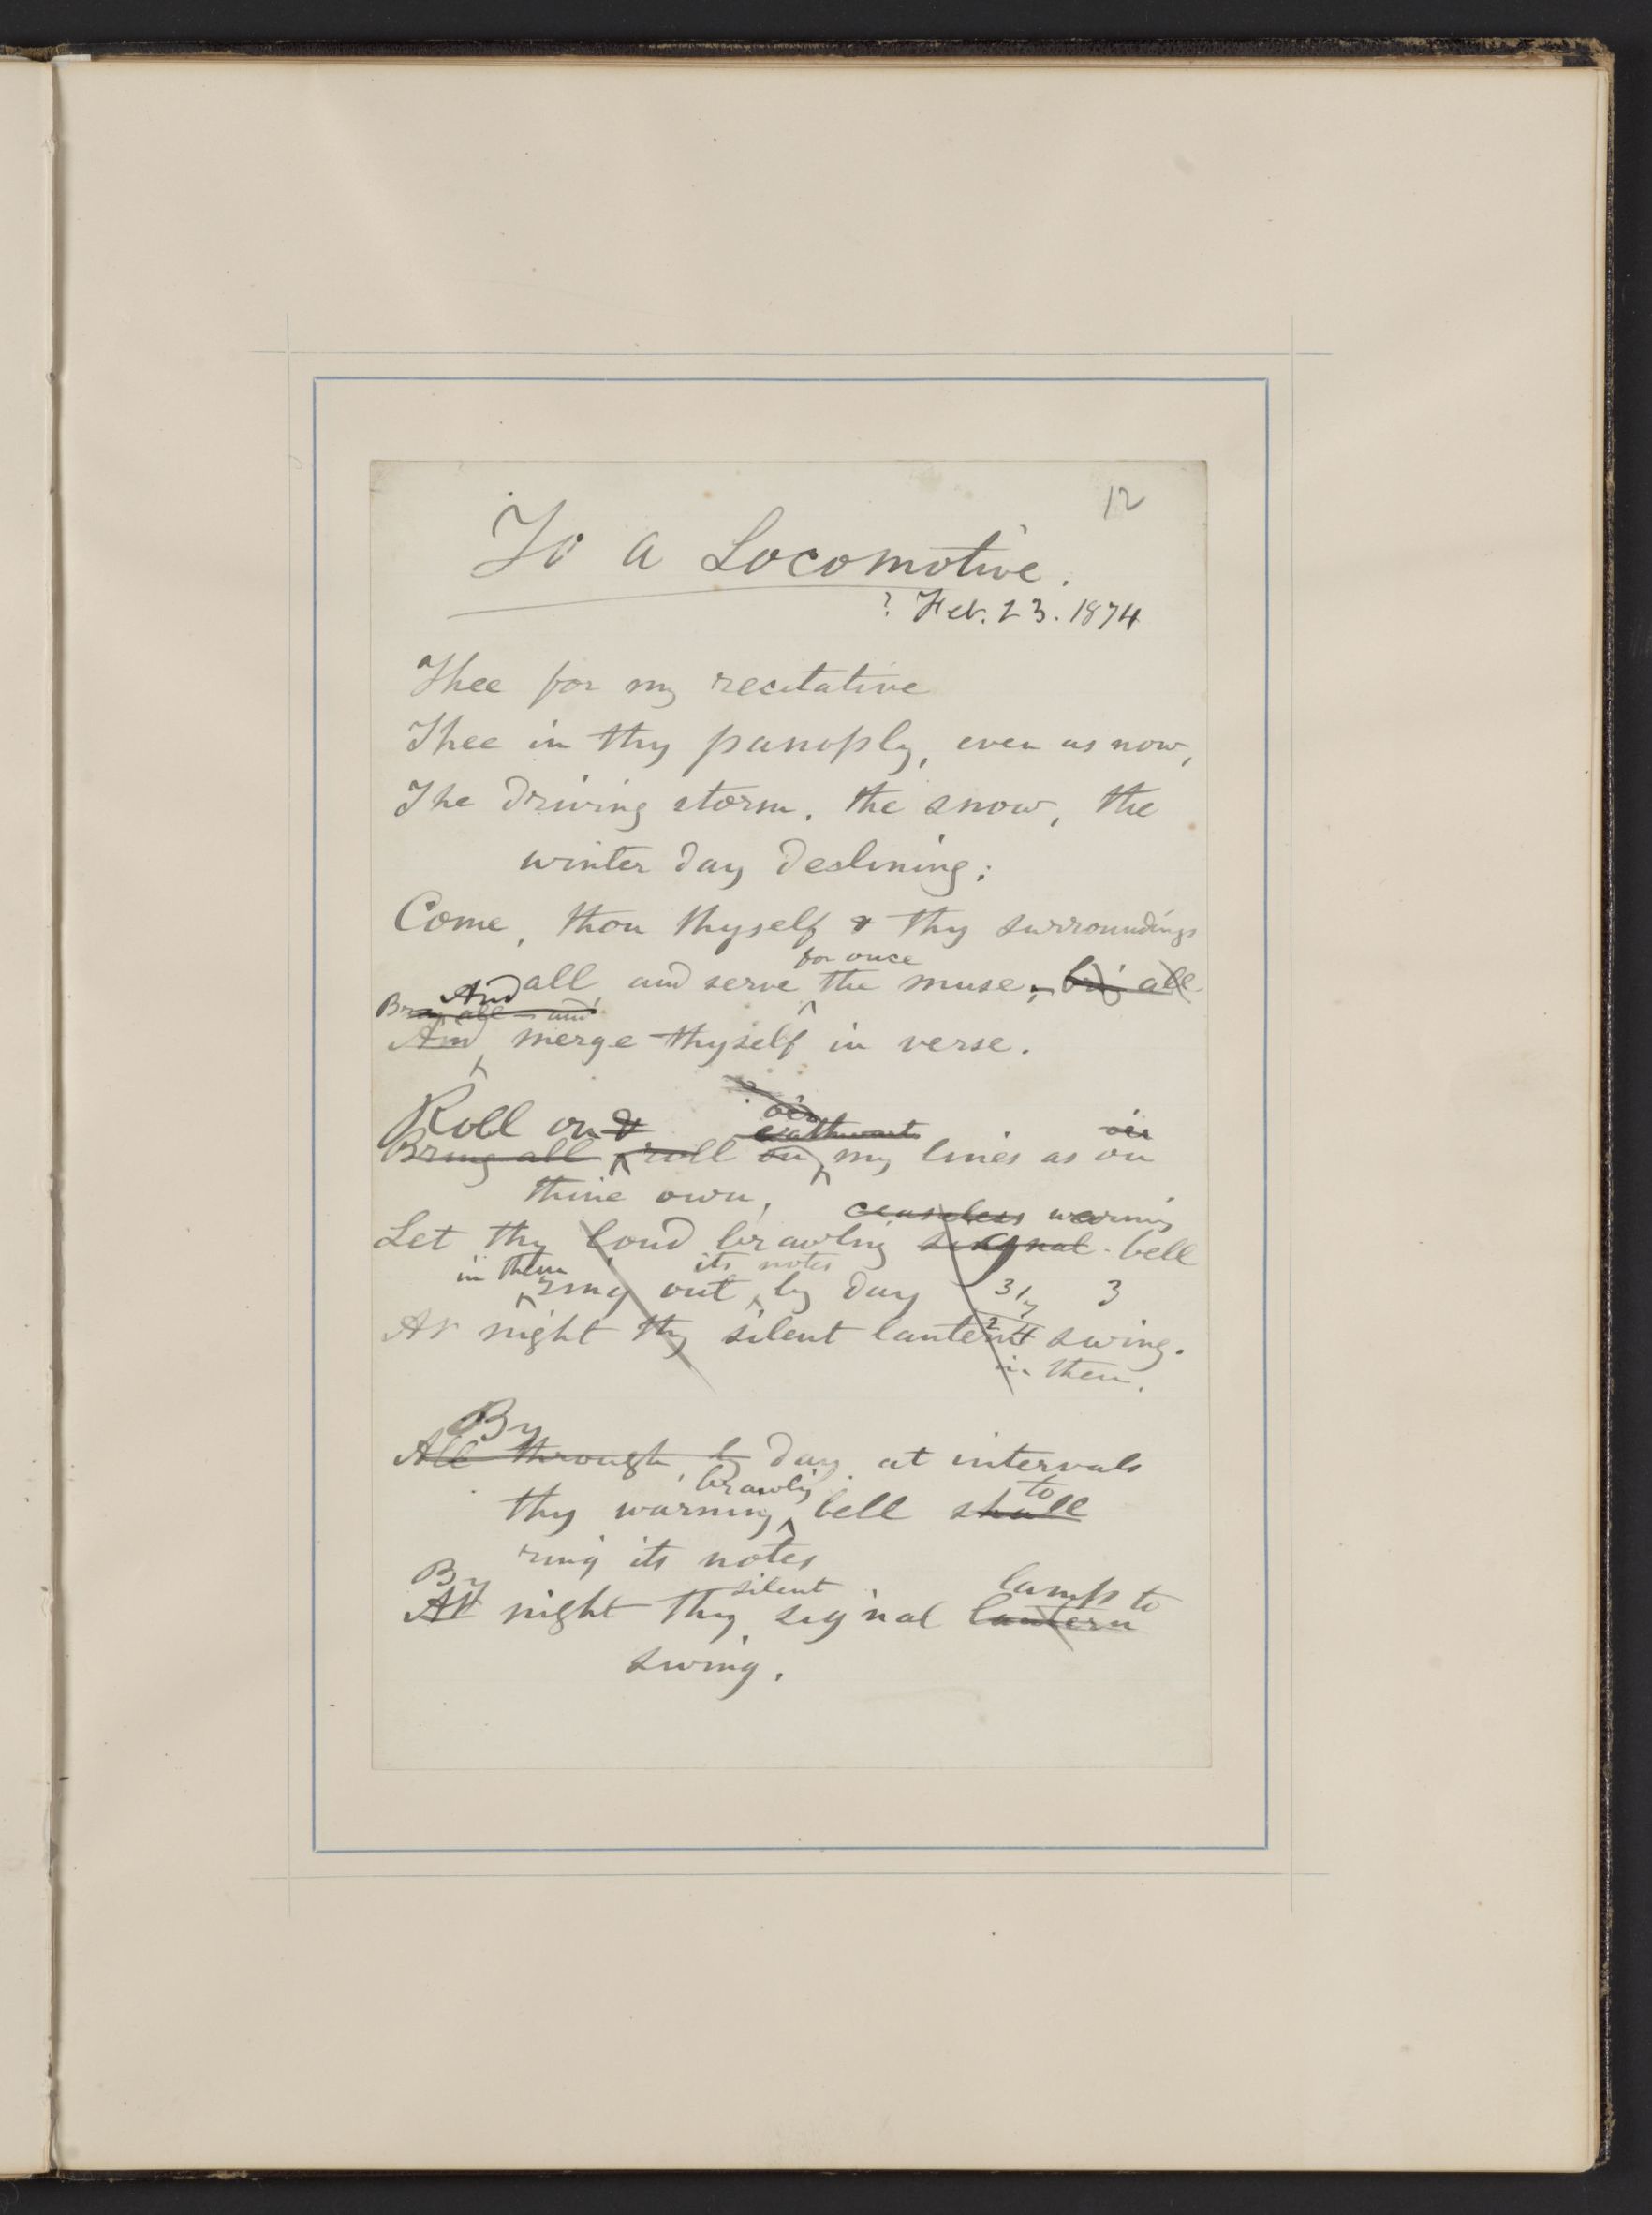 12
To a Locomotive.
? Feb. 23. 1874
Thee for my recitative
Thee in thy panoply, even as now,
The driving storm, the snow, the
winter day declining;
Come, thou thyself & thy surroundings
for once
all and serve the muse, all
And
all and
And merge thyself in verse.
Roll on &
o'er
athwart
o'er
Bring all roll on my lines as on
thine own,
ceaseless warning
Let thy loud brawling signal bell
in them its notes
ring out by day 3 3
At night thy silent lantern swing.
in them.
By
All through by day at intervals
brawling to
thy warning bell shall
ring its notes
By silent lamps to
At night thy signal lantern
swing.